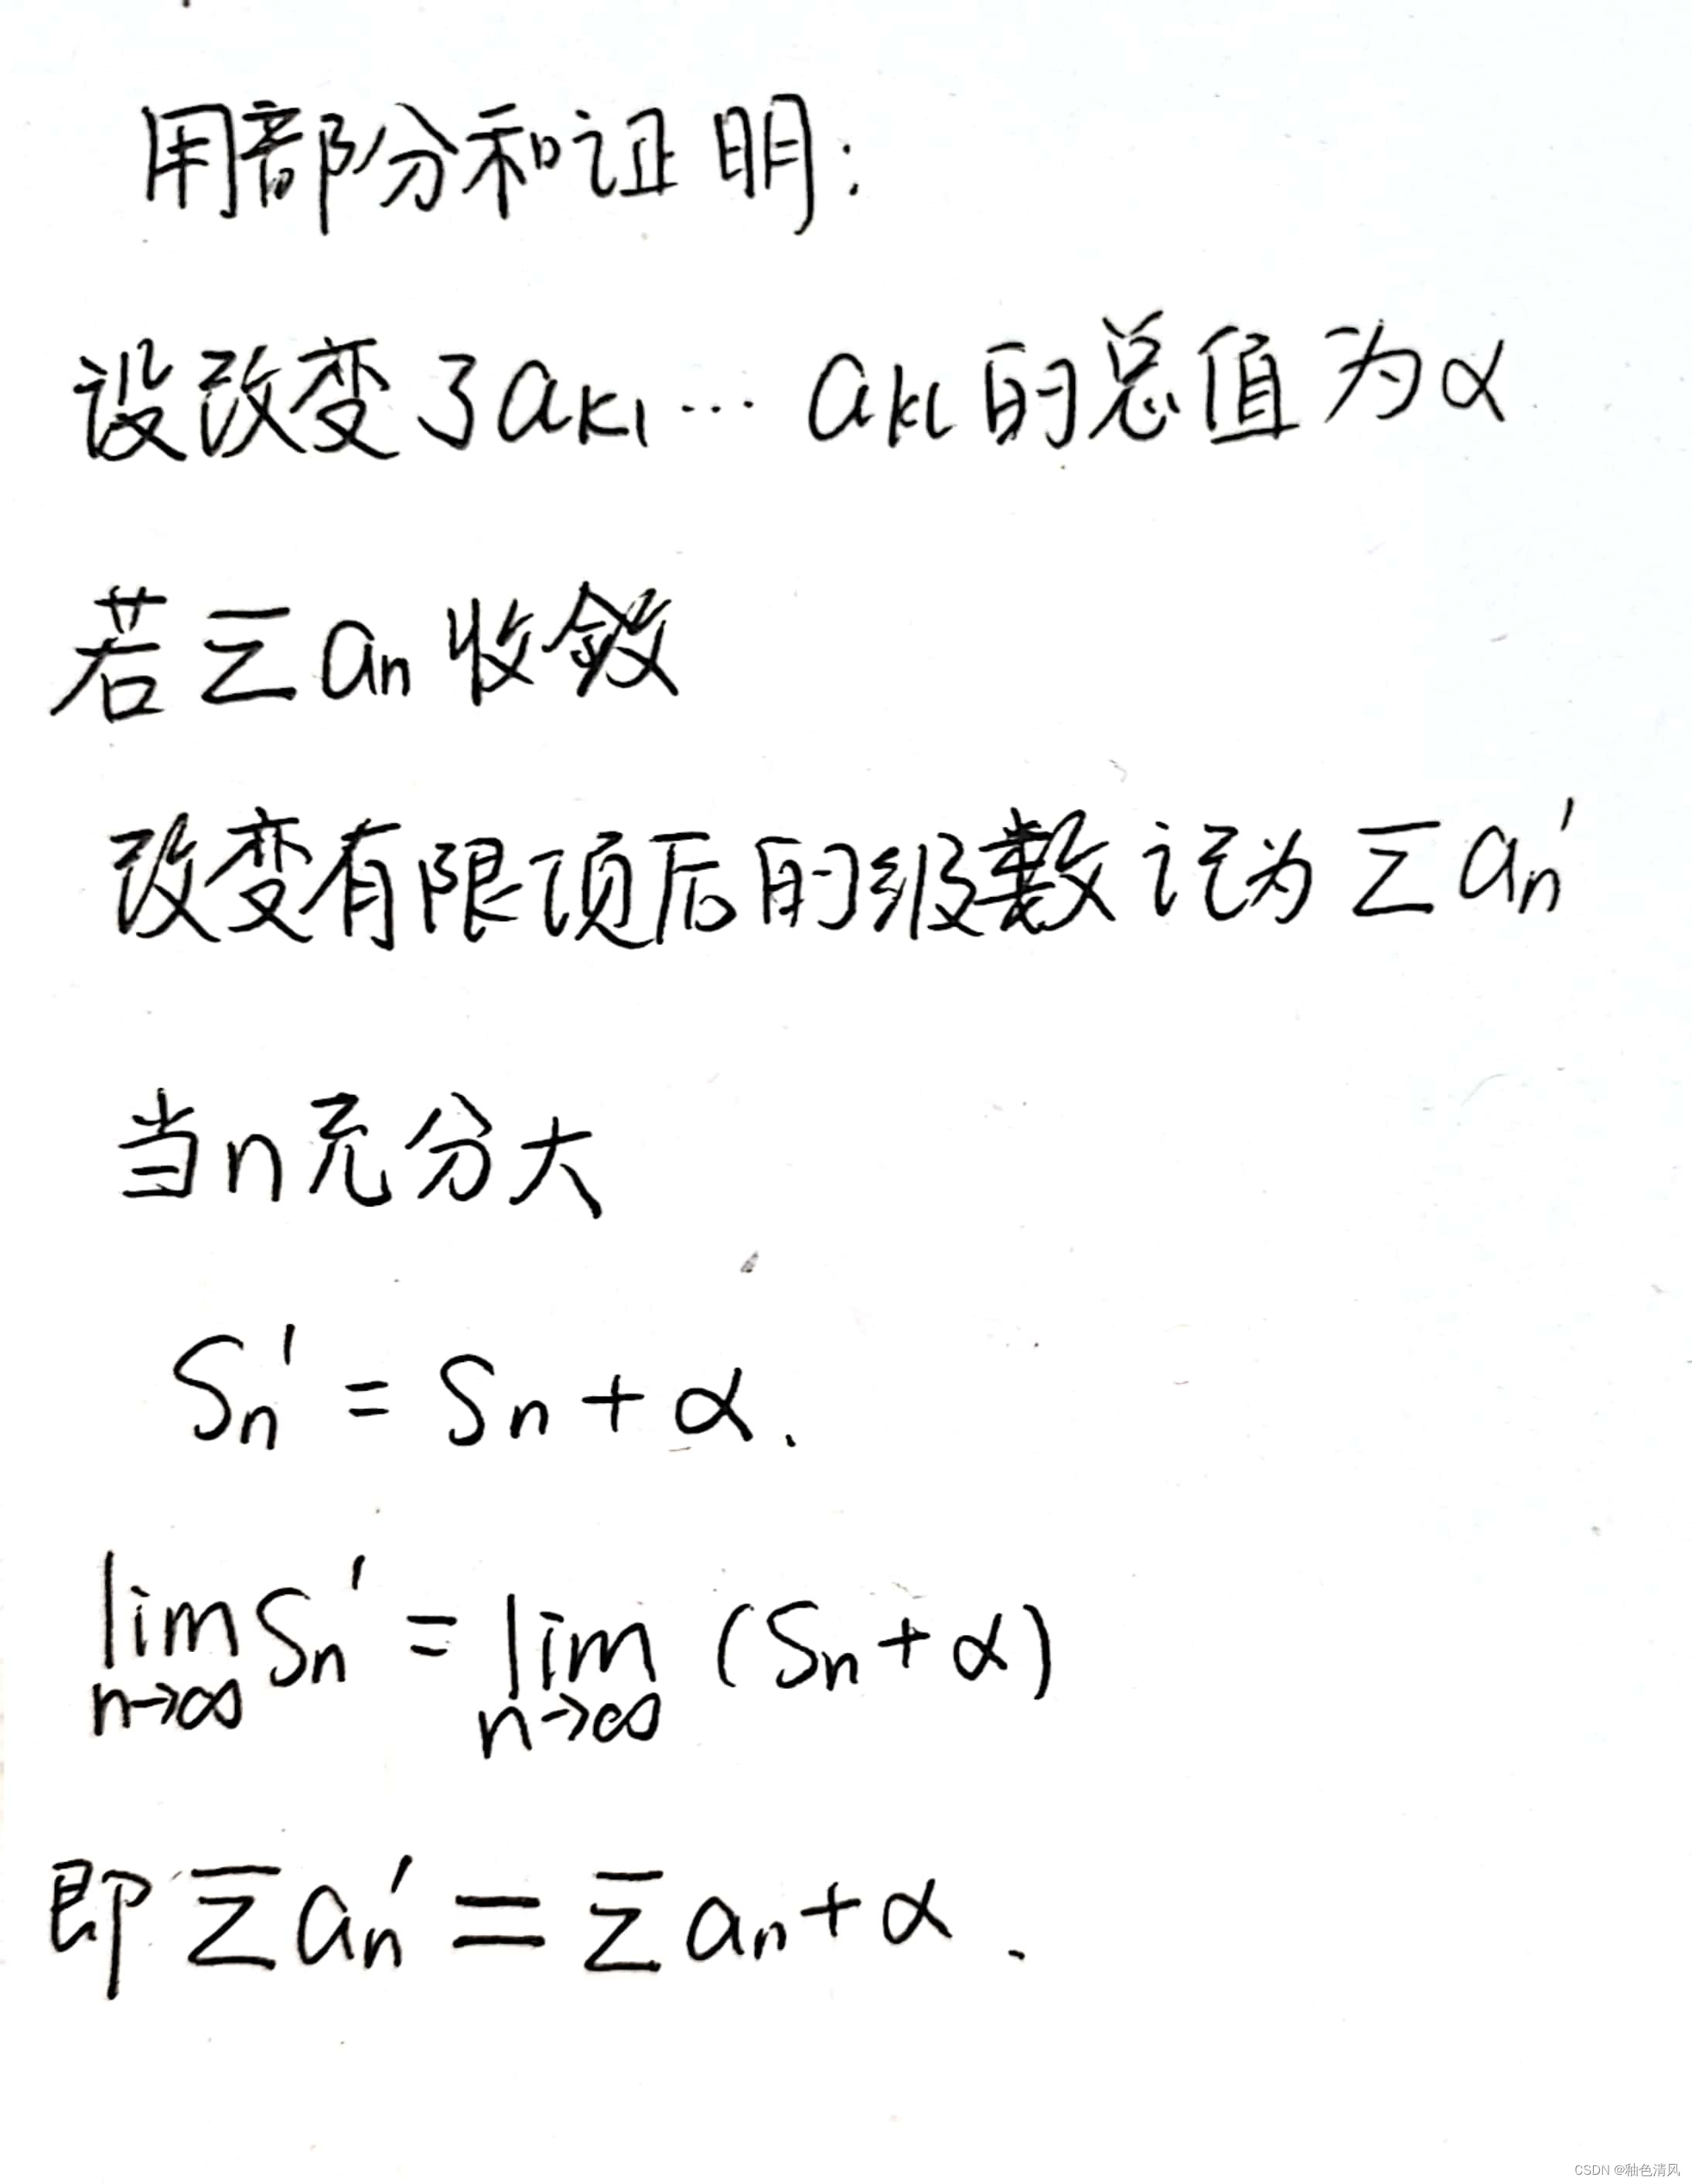 用部分和证明:
设改变了ak1…akl的总值为α
若Σan收敛
改变有限项后的级数记为Σan'
当n充分大
Sn' = Sn + α.
lim n→∞ Sn' = lim n→∞ (Sn + α)
即Σan' = Σan + α.
CSDN @釉色清风